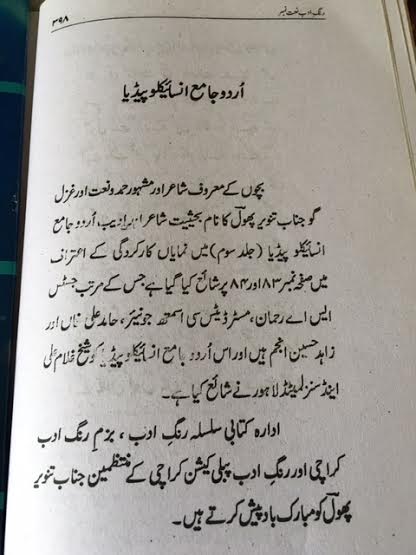 رنگِ ادب نعت نمبر
۳۹۸
اُردو جامع انسائیکلو پیڈیا
بچوں کے معروف شاعر اور مشہور حمد و نعت اور غزل
گو جناب تنویر پھولؔ کا نام بحیثیت شاعر اور ادیب، اُردو جامع
انسائیکلو پیڈیا (جلد سوم) میں نمایاں کارکردگی کے اعتراف
میں صفحہ نمبر ۸۳ اور ۸۴ پر شائع کیا گیا ہے جس کے مرتب جسٹس
ایس اے رحمان، مسٹر ڈیٹس سی اسمتھ جونیئر، حامد علی خاں اور
زاہد حسین انجم ہیں اور اس اُردو جامع انسائیکلو پیڈیا کو شیخ غلام علی
اینڈ سنز لمیٹڈ لاہور نے شائع کیا ہے۔
ادارہ کتابی سلسلہ رنگِ ادب، بزمِ رنگِ ادب
کراچی اور رنگِ ادب پبلی کیشن کراچی کے منتظمین جناب تنویر
پھولؔ کو مبارک باد پیش کرتے ہیں۔